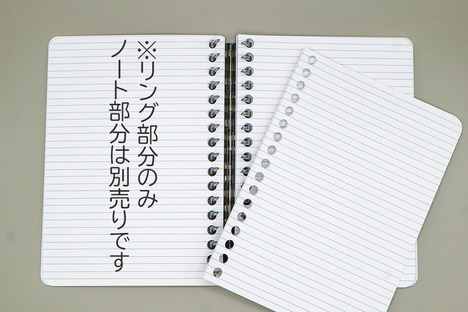 ※リング部分のみ
ノート部分は別売りです